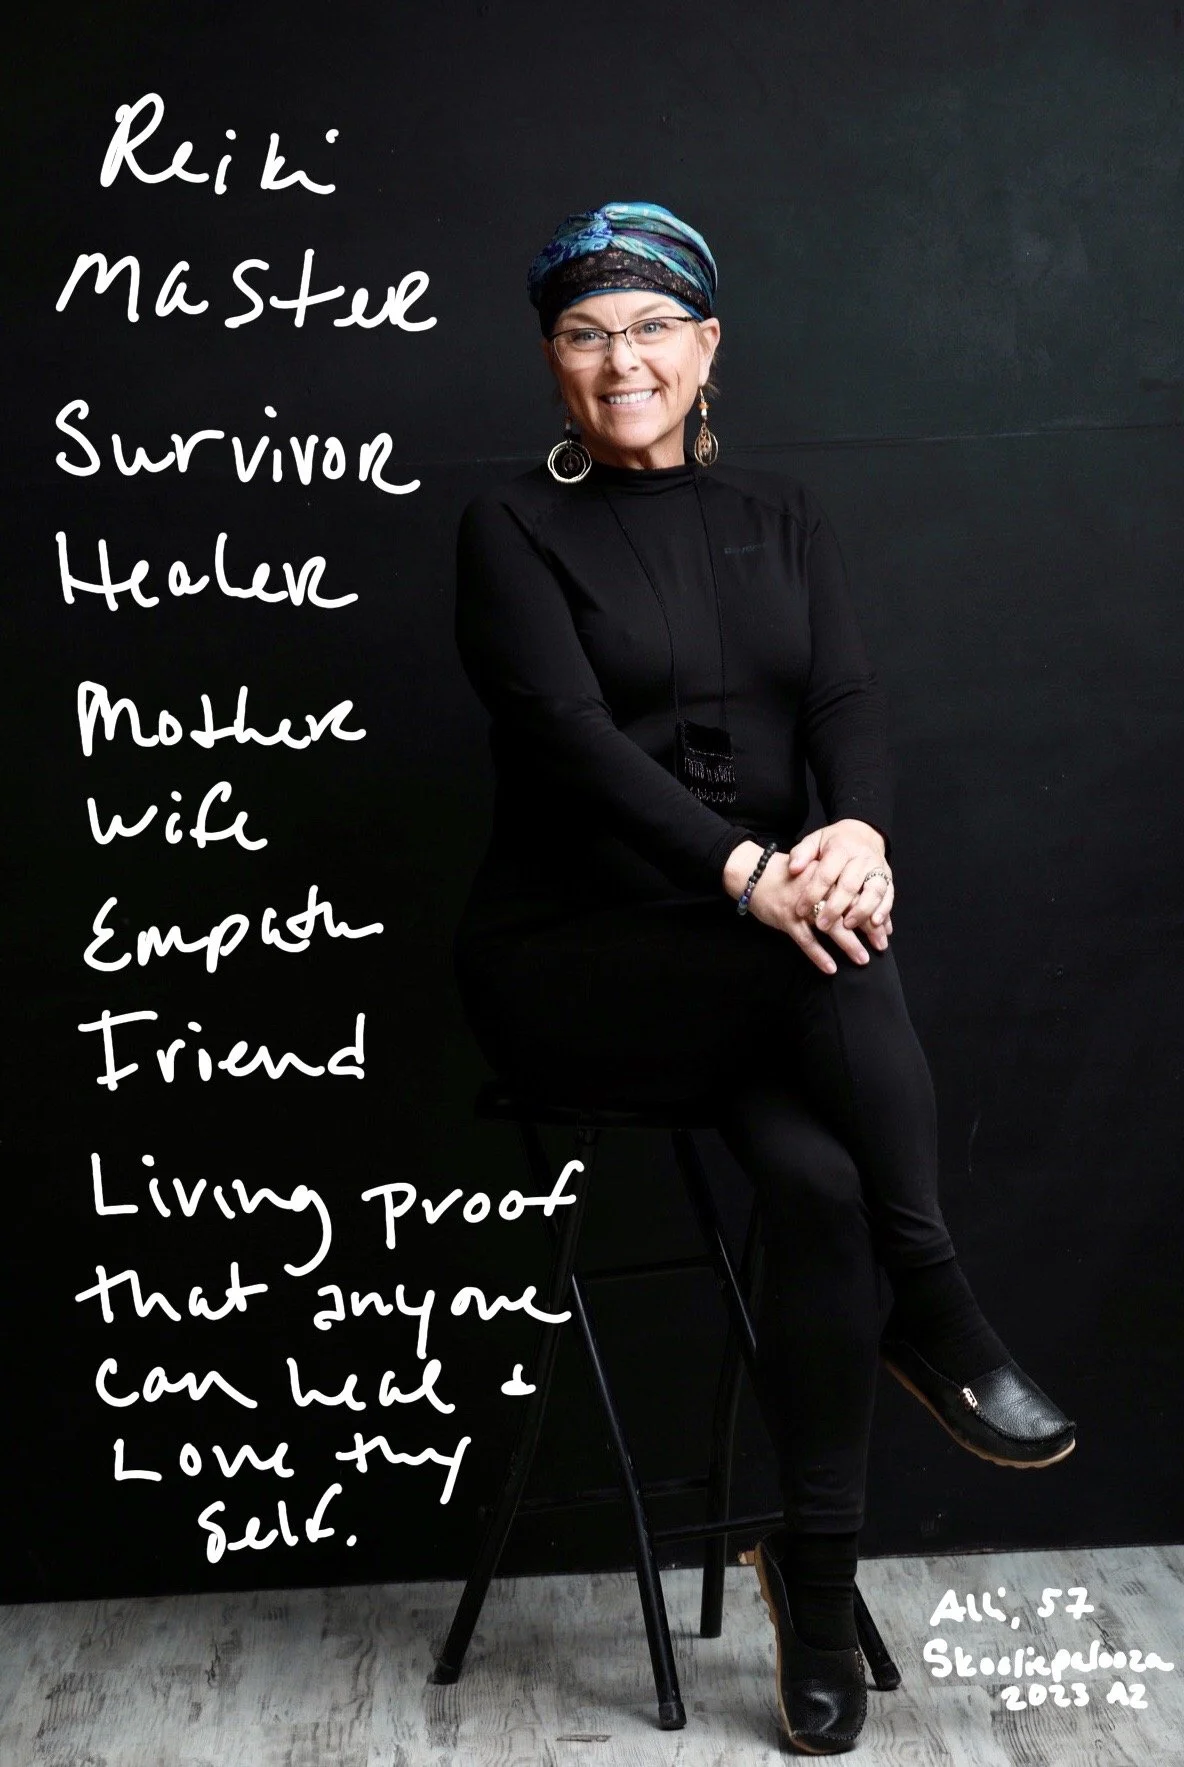 Reiki
Master
Survivor
Healer
Mother
Wife
Empath
Friend
Living proof
that anyone
can heal &
Love thy
self.
Alli, 57
Skooliepalooza
2023 AZ